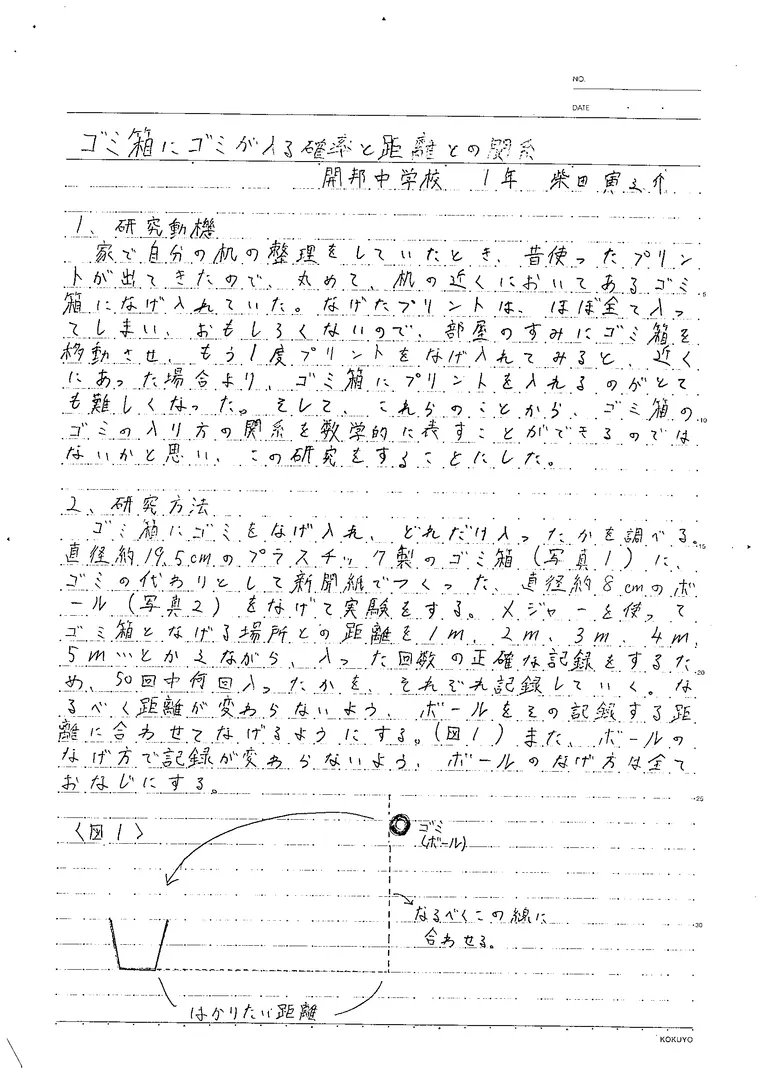 NO.
DATE
ゴミ箱にゴミが入る確率と距離との関係
開邦中学校 1年 柴田寅之介
1、研究動機
家で自分の机の整理をしていたとき、昔使ったプリン
トが出てきたので、丸めて、机の近くにおいてあるゴミ
箱になげ入れていた。なげたプリントは、ほぼ全て入っ
てしまい、おもしろくないので、部屋のすみにゴミ箱を
移動させ、もう1度プリントをなげ入れてみると、近く
にあった場合より、ゴミ箱にプリントを入れるのがとて
も難しくなった。そして、これらのことから、ゴミ箱の
ゴミの入り方の関係を数学的に表すことができるのでは
ないかと思い、この研究をすることにした。
2、研究方法
ゴミ箱にゴミをなげ入れ、どれだけ入ったかを調べる。
直径約19.5cmのプラスチック製のゴミ箱(写真1)に、
ゴミの代わりとして新聞紙でつくった、直径約8cmのボ
ール(写真2)をなげて実験をする。メジャーを使って
ゴミ箱となげる場所との距離を1m、2m、3m、4m、
5m…とかえながら、入った回数の正確な記録をするた
め、50回中何回入ったかを、それぞれ記録していく。な
るべく距離が変わらないよう、ボールをその記録する距
離に合わせてなげるようにする。(図1)また、ボールの
なげ方で記録が変わらないよう、ボールのなげ方は全て
おなじにする。
〈図1〉
ゴミ
(ボール)
なるべくこの線に
合わせる。
はかりたい距離
5
10
15
20
25
30
KOKUYO